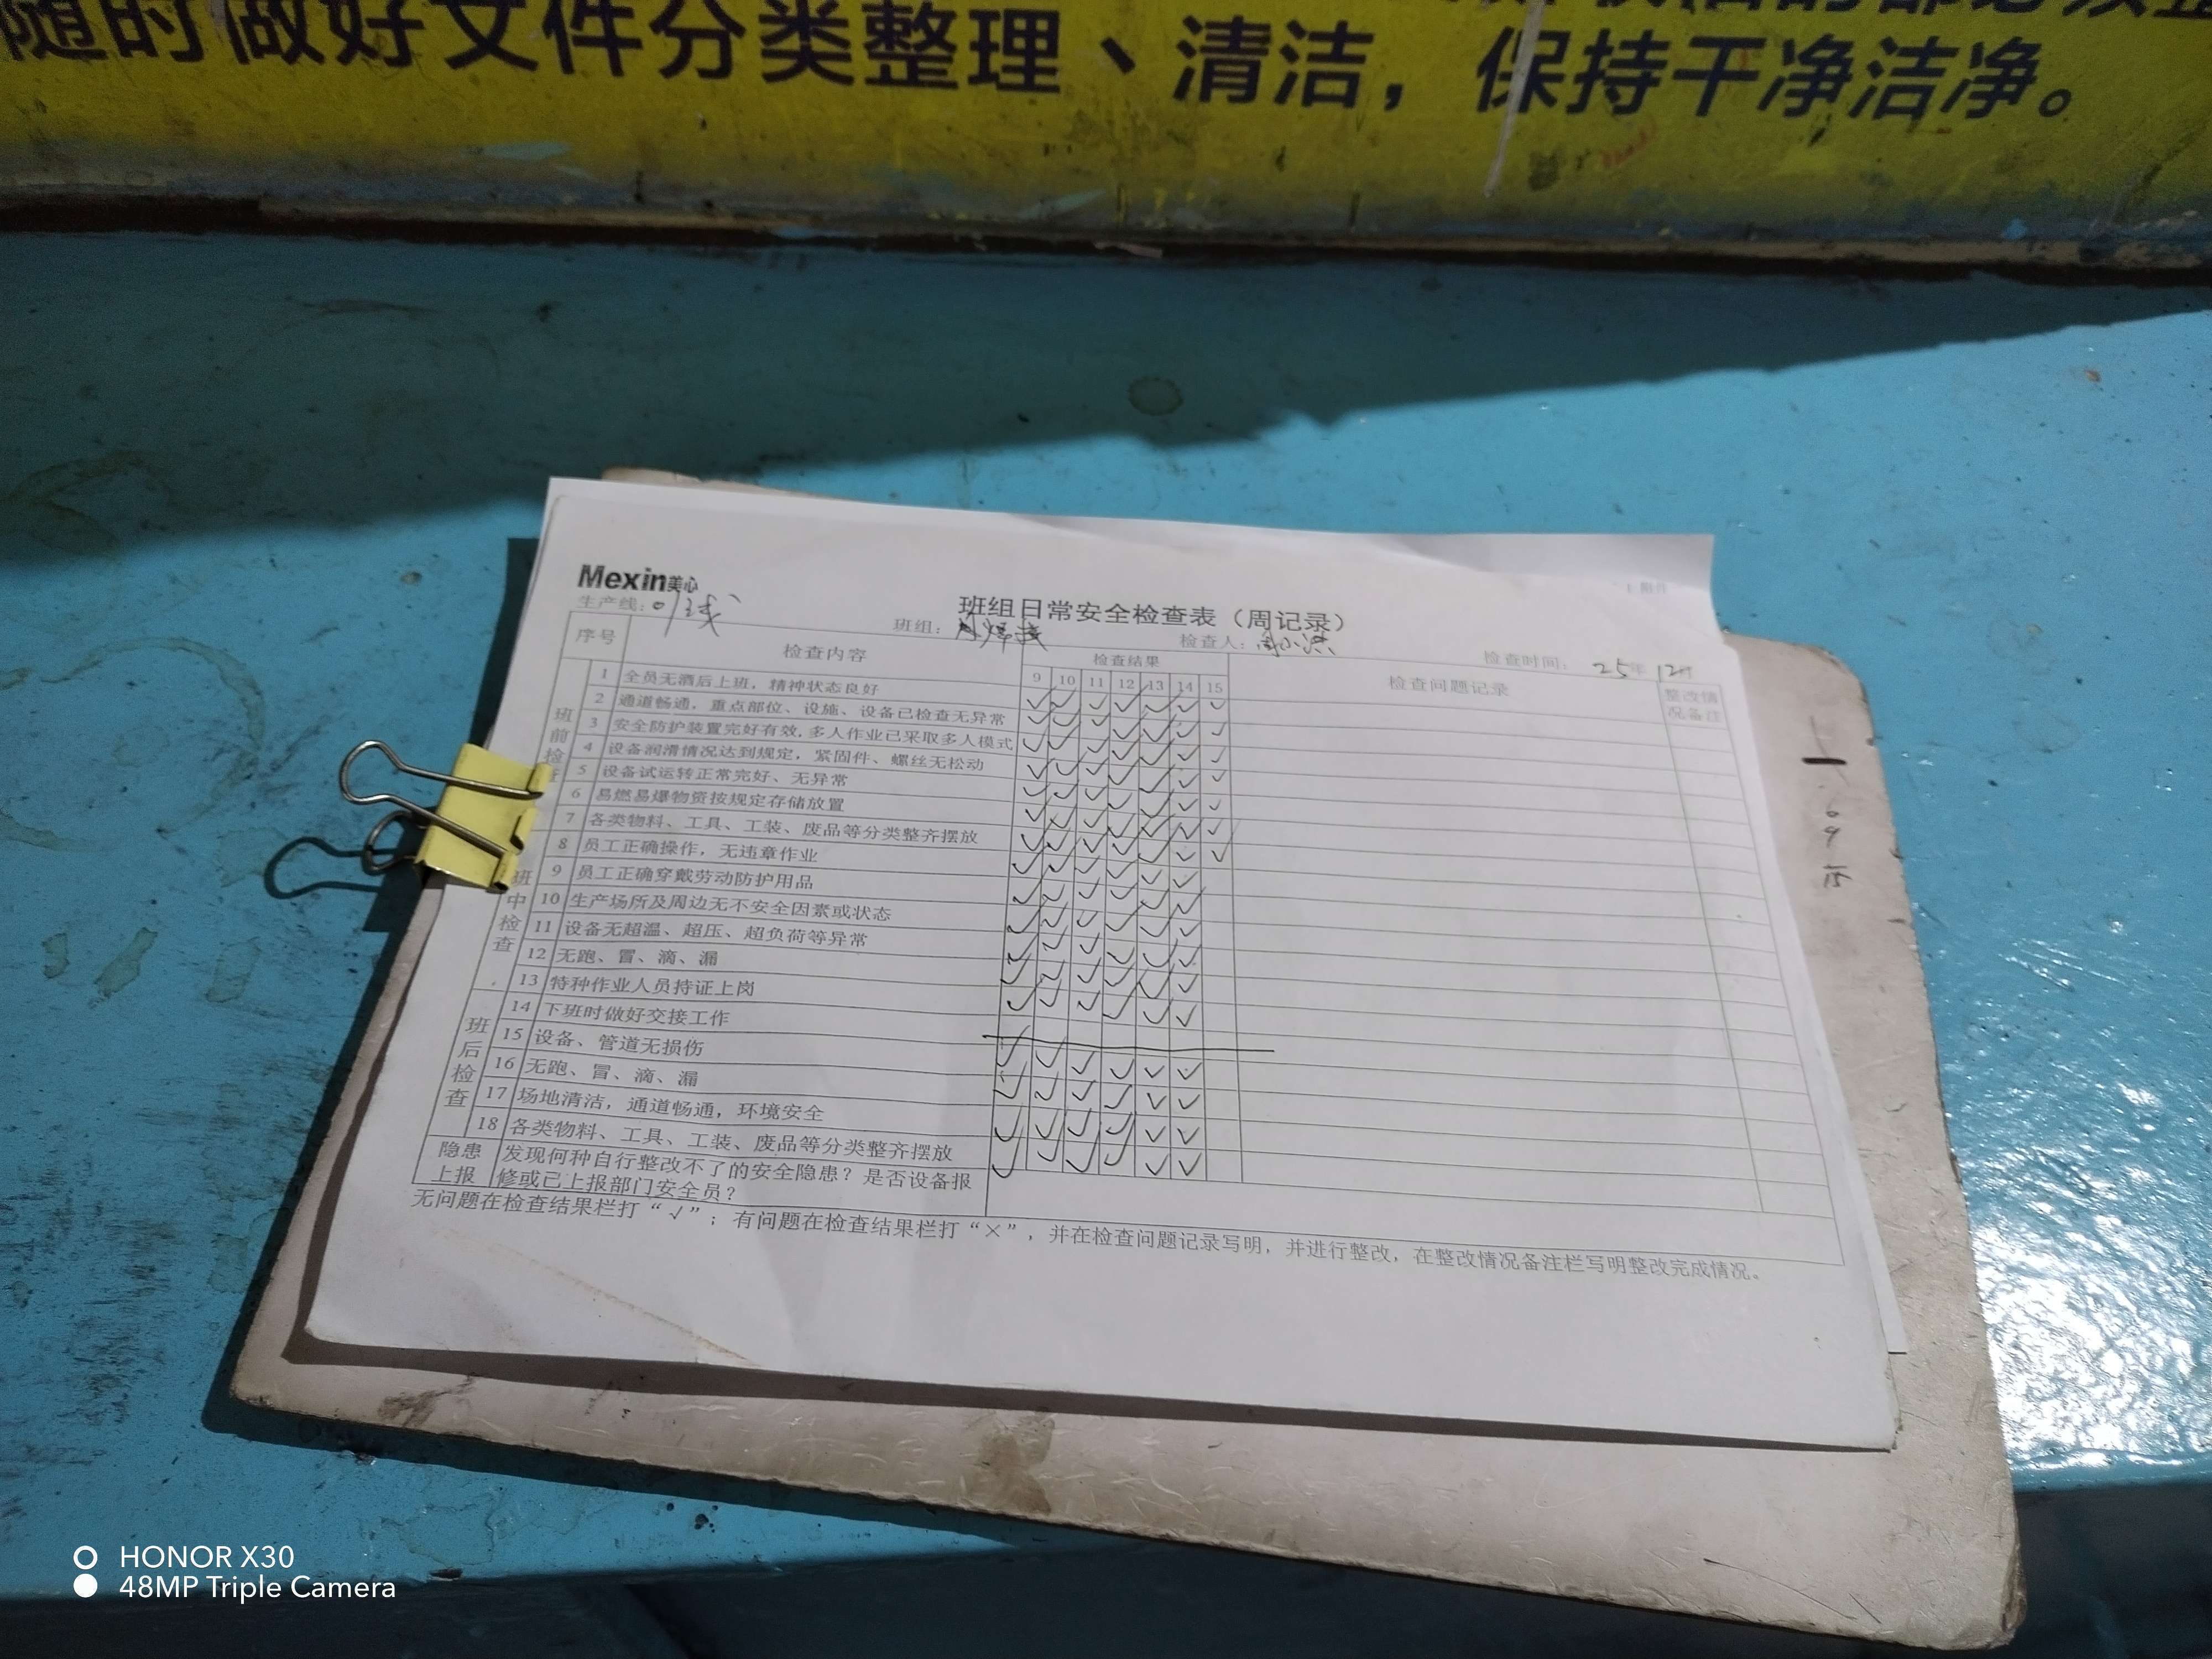 随时做好文件分类整理、清洁，保持干净洁净。
Mexin美心
班组日常安全检查表（周记录）
生产线：
班组：
检查人：
检查时间： 25年 12月
序号 检查内容 检查结果 检查问题记录 整改情况备注
9 10 11 12 13 14 15
班前检查
1 全员无酒后上班，精神状态良好 ✓ ✓ ✓ ✓ ✓ ✓ ✓
2 通道畅通，重点部位、设施、设备已检查无异常 ✓ ✓ ✓ ✓ ✓ ✓ ✓
3 安全防护装置完好有效，多人作业已采取多人模式 ✓ ✓ ✓ ✓ ✓ ✓ ✓
4 设备润滑情况达到规定，紧固件、螺丝无松动 ✓ ✓ ✓ ✓ ✓ ✓ ✓
5 设备试运转正常完好、无异常 ✓ ✓ ✓ ✓ ✓ ✓ ✓
6 易燃易爆物资按规定存储放置 ✓ ✓ ✓ ✓ ✓ ✓ ✓
7 各类物料、工具、工装、废品等分类整齐摆放 ✓ ✓ ✓ ✓ ✓ ✓ ✓
班中检查
8 员工正确操作，无违章作业 ✓ ✓ ✓ ✓ ✓ ✓
9 员工正确穿戴劳动防护用品 ✓ ✓ ✓ ✓ ✓ ✓
10 生产场所及周边无不安全因素或状态 ✓ ✓ ✓ ✓ ✓ ✓
11 设备无超温、超压、超负荷等异常 ✓ ✓ ✓ ✓ ✓ ✓
12 无跑、冒、滴、漏 ✓ ✓ ✓ ✓ ✓ ✓
13 特种作业人员持证上岗 ✓ ✓ ✓ ✓ ✓ ✓
班后检查
14 下班时做好交接工作
15 设备、管道无损伤 ✓ ✓ ✓ ✓ ✓ ✓
16 无跑、冒、滴、漏 ✓ ✓ ✓ ✓ ✓ ✓
17 场地清洁，通道畅通，环境安全 ✓ ✓ ✓ ✓ ✓ ✓
18 各类物料、工具、工装、废品等分类整齐摆放 ✓ ✓ ✓ ✓ ✓ ✓
隐患上报 发现何种自行整改不了的安全隐患？是否设备报
修或已上报部门安全员？
无问题在检查结果栏打“√”；有问题在检查结果栏打“×”，并在检查问题记录写明，并进行整改，在整改情况备注栏写明整改完成情况。
HONOR X30
48MP Triple Camera